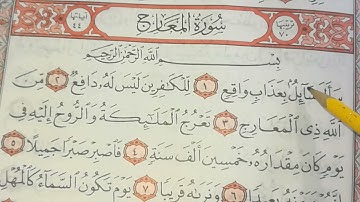 ترتيبها ٧٠ سُورَةُ المَعَارِجِ آياتها ٤٤
بِسْمِ اللَّهِ الرَّحْمَٰنِ الرَّحِيمِ
سَأَلَ سَآئِلُۢ بِعَذَابٖ وَاقِعٖ ١ لِّلۡكَٰفِرِينَ لَيۡسَ لَهُۥ دَافِعٞ ٢ مِّنَ
ٱللَّهِ ذِي ٱلۡمَعَارِجِ ٣ تَعۡرُجُ ٱلۡمَلَٰٓئِكَةُ وَٱلرُّوحُ إِلَيۡهِ فِي
يَوۡمٖ كَانَ مِقۡدَارُهُۥ خَمۡسِينَ أَلۡفَ سَنَةٖ ٤ فَٱصۡبِرۡ صَبۡرٗا جَمِيلًا ٥
إِنَّهُمۡ يَرَوۡنَهُۥ بَعِيدٗا ٦ وَنَرَىٰهُ قَرِيبٗا ٧ يَوۡمَ تَكُونُ ٱلسَّمَآءُ كَٱلۡمُهۡلِ